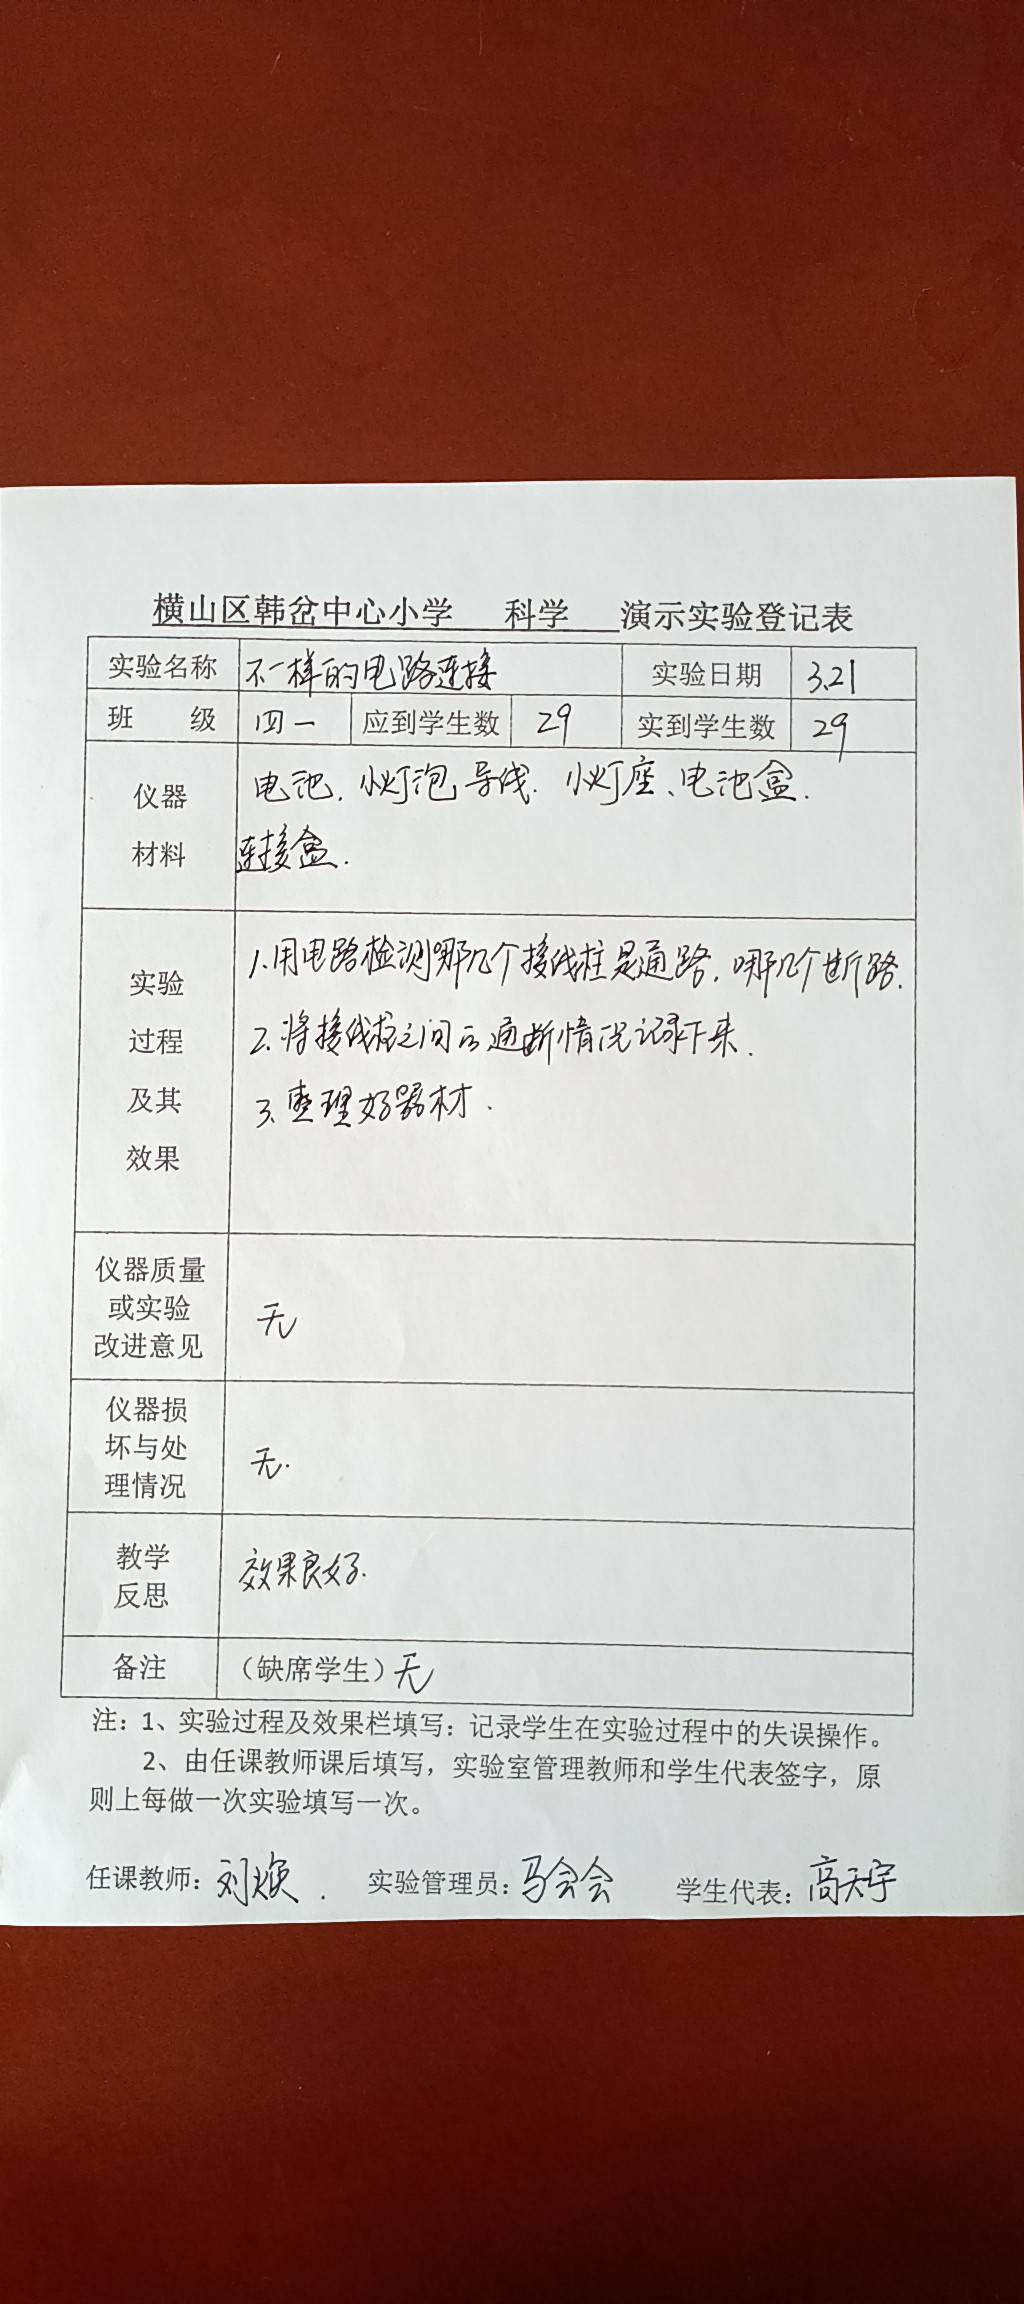 横山区韩岔中心小学 科学 演示实验登记表
实验名称 不一样的电路连接 实验日期 3.21
班 级 四一 应到学生数 29 实到学生数 29
仪器 电池、小灯泡、导线、小灯座、电池盒、
材料 连接盒.
实验 1.用电路检测哪几个接线柱是通路,哪几个断路.
过程 2.将接线柱之间的通断情况记录下来.
及其 3.整理好器材.
效果
仪器质量
或实验
改进意见
无
仪器损
坏与处
理情况
无.
教学
反思
效果良好.
备注 (缺席学生)无
注:1、实验过程及效果栏填写:记录学生在实验过程中的失误操作。
2、由任课教师课后填写,实验室管理教师和学生代表签字,原
则上每做一次实验填写一次。
任课教师:刘焕. 实验管理员:马会会 学生代表:高天宇